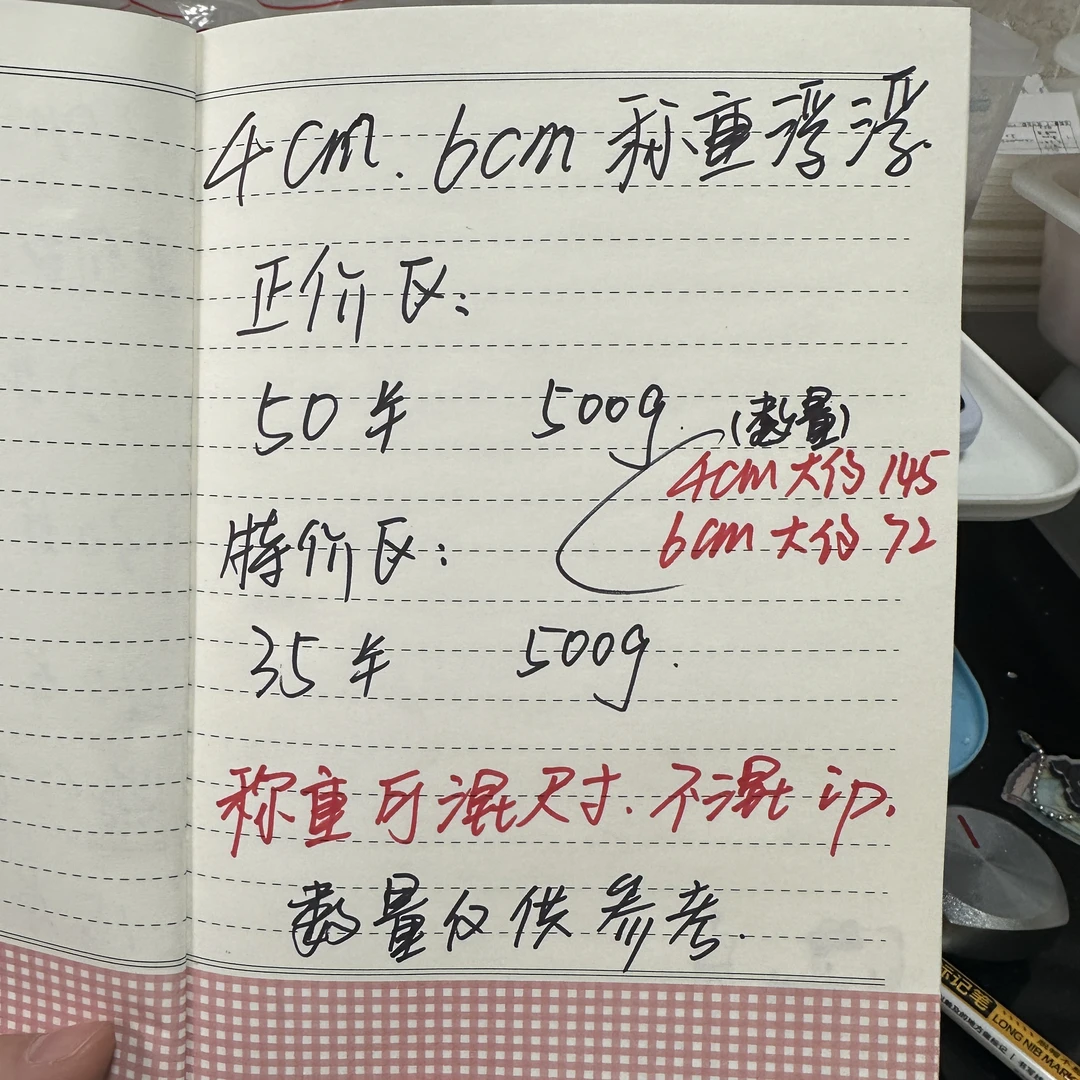 4cm. 6cm 称重浮浮.
正价区:
50米 500g (数量)
4cm大约145
6cm大约72
特价区:
35米 500g.
称重可混尺寸.不混ip.
数量仅供参考.
记笔
LONG NIB MAR